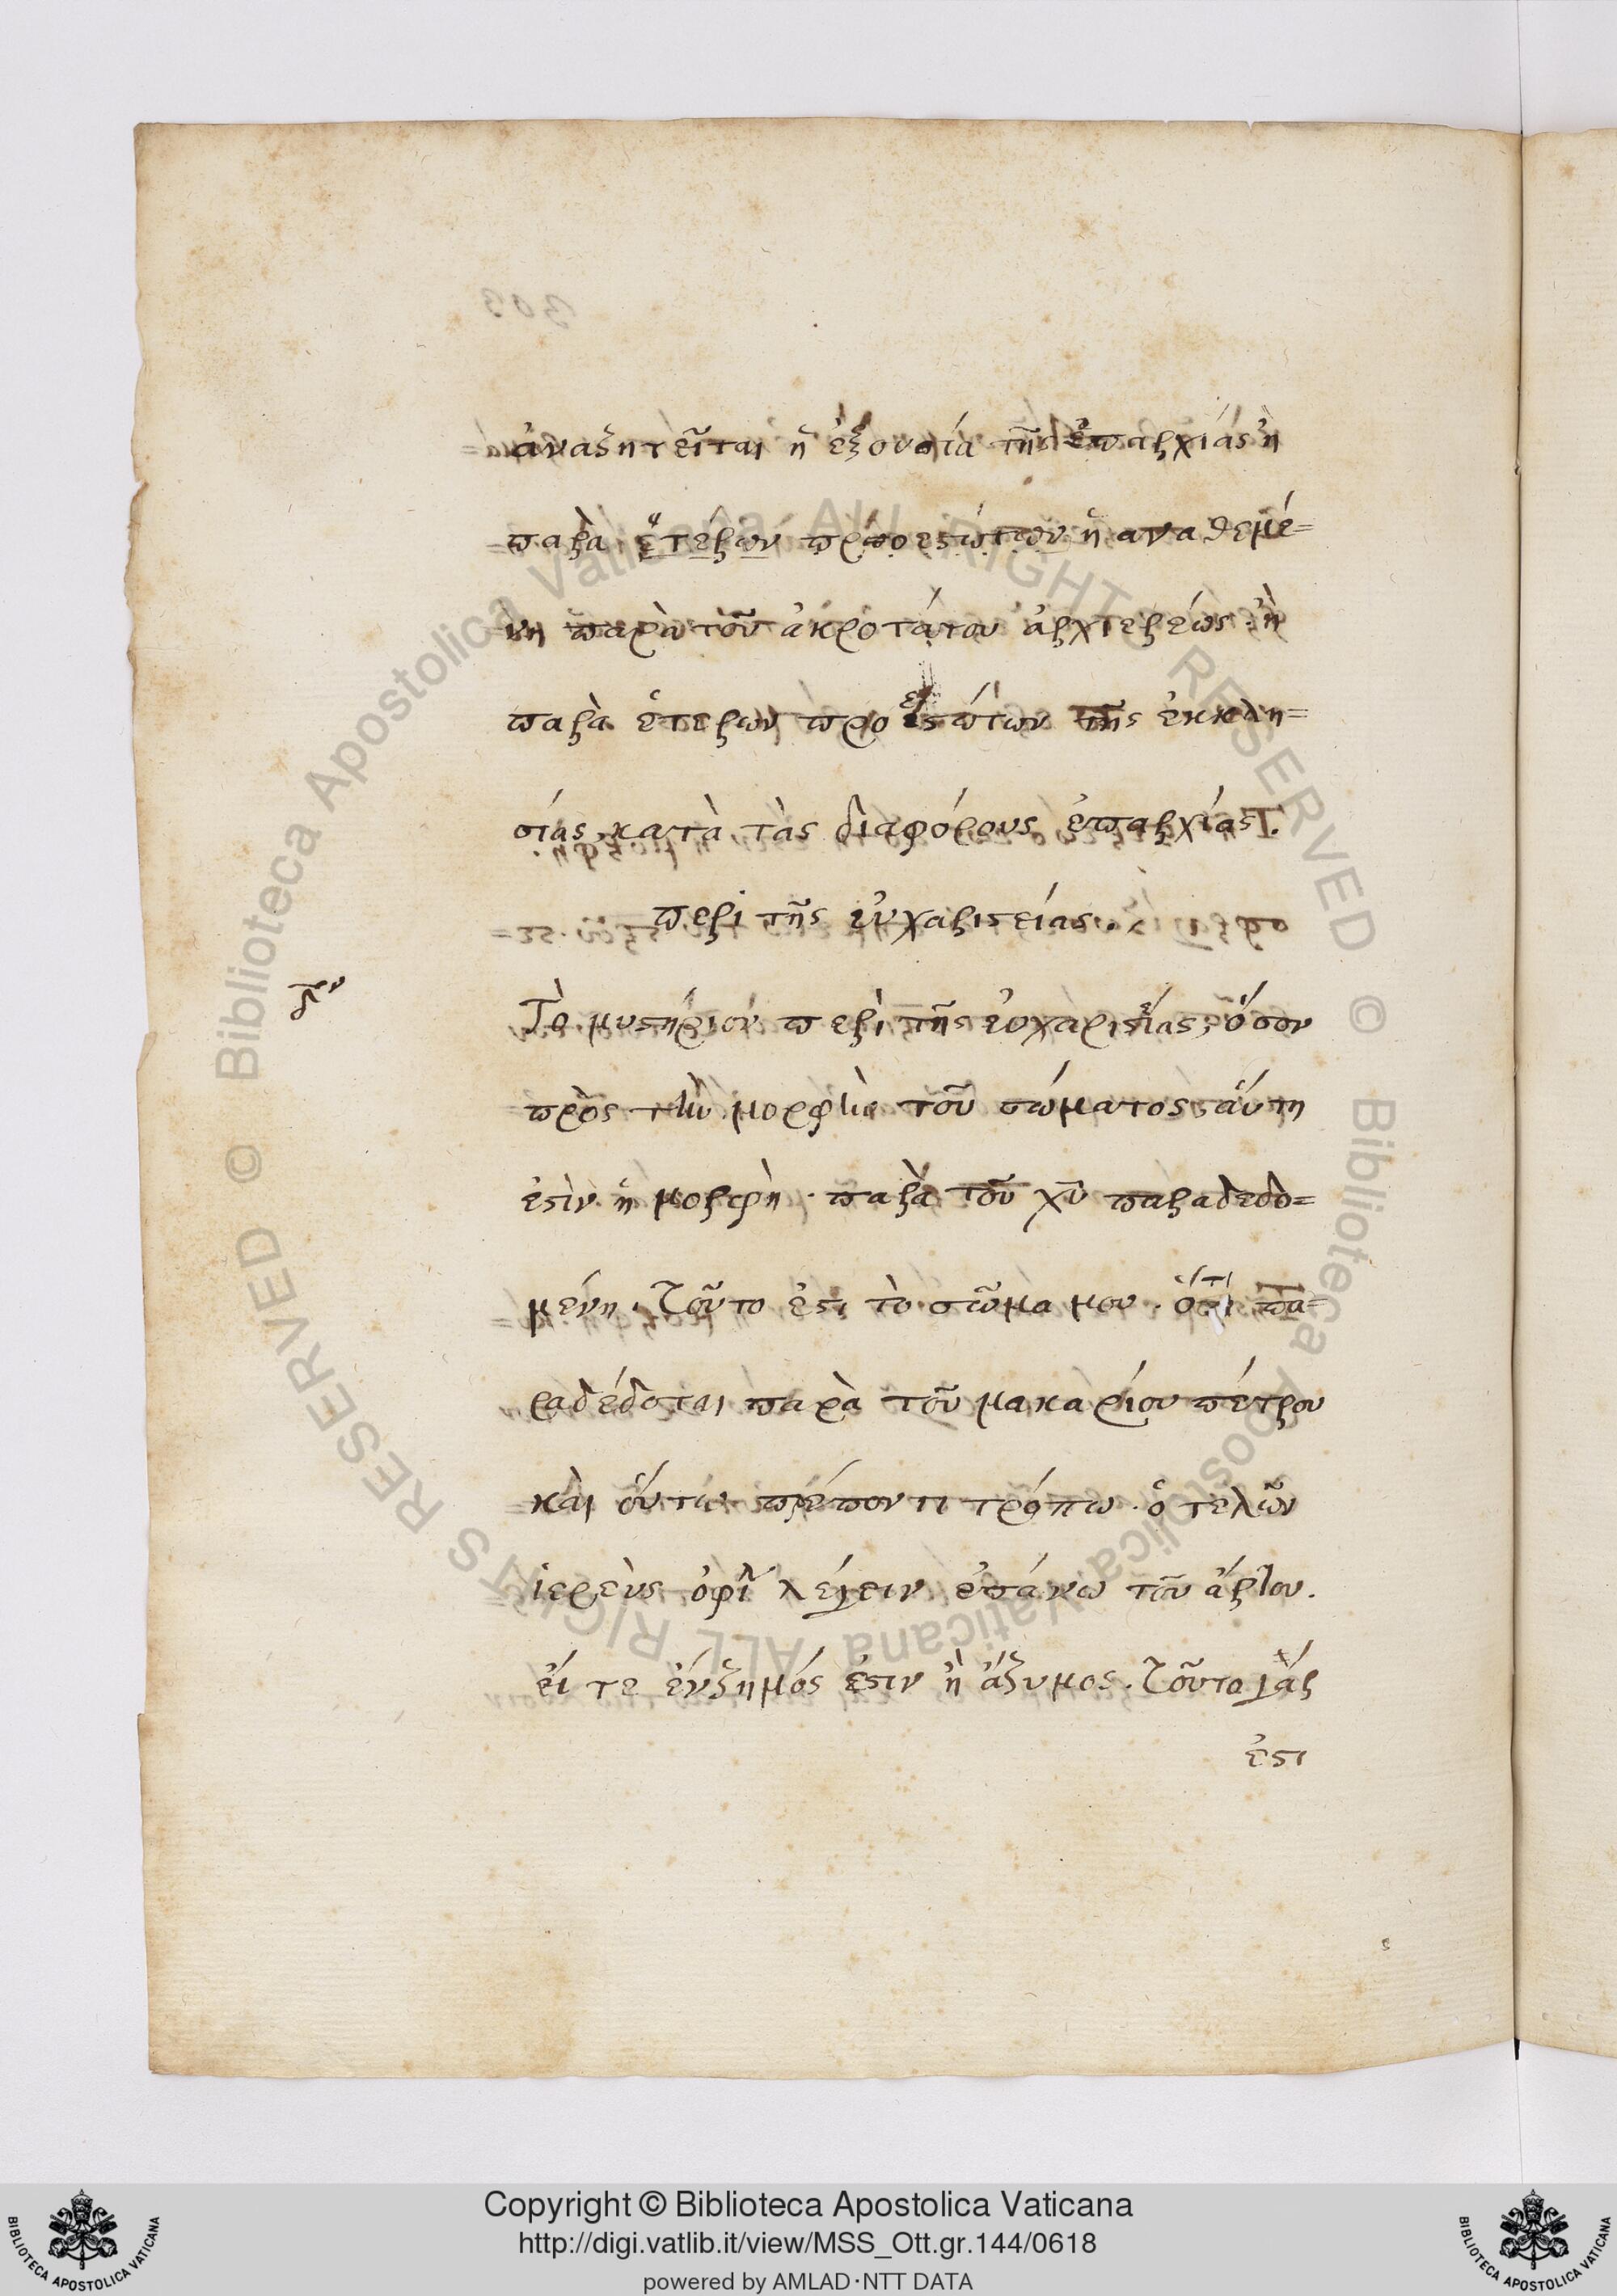 ἀναζητεῖται ἡ ἐξουσία τῆς ἐπαρχίας ἢ
παρὰ ἑτέρων προεστώτων ἢ αναθεμέ=
νη παρὰ τοῦ ἀκροτάτου ἀρχιερέως· ἢ
παρὰ ἑτέρων προεστώτων τῆς ἐκκλη=
σίας κατὰ τὰς διαφόρους ἐπαρχίας.
περὶ τῆς εὐχαριστείας.
Τὸ μυστήριον περὶ τῆς εὐχαριστίας, ὅσον
πρὸς τὴν μορφὴν τοῦ σώματος, ἅυτη
ἐστὶν ἡ μορφὴ· παρὰ τοῦ χῦ παραδεδο=
μένη. Τοῦτο ἐστι τὸ σῶμα μου· ὅτι πα=
ραδέδοται παρὰ τοῦ μακαρίου πέτρου
καὶ ὅυτω πρέποντι τρόπω· ὁ τελῶν
ἱερεὺς ὀφεῖ λέγειν ἐπάνω τοῦ ἄρτου.
εἴ τε ἔνζημός ἐστιν ἢ ἄζυμος. Τοῦτο γάρ
ἐστι
Copyright © Biblioteca Apostolica Vaticana
http://digi.vatlib.it/view/MSS_Ott.gr.144/0618
powered by AMLAD·NTT DATA
BIBLIOTECA APOSTOLICA VATICANA
BIBLIOTECA APOSTOLICA VATICANA